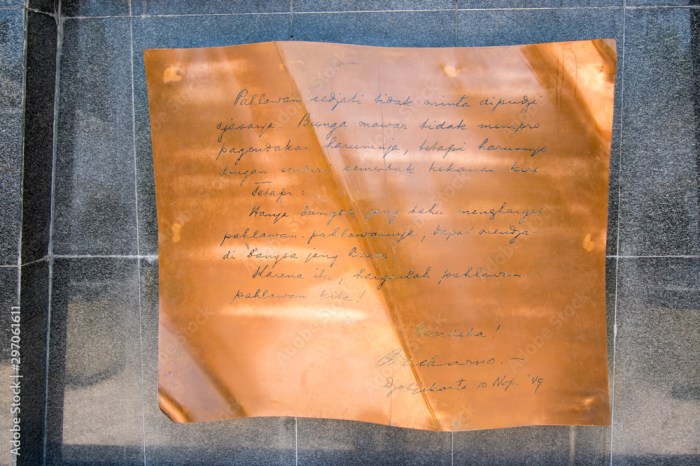 Pahlawan sedjati tidak minta dipudji
djasanja. Bunga mawar tidak mempro-
pagandakan harumnja, tetapi harumnja
dengan sendiri semerbak kekanan-kiri.
Tetapi:
Hanja bangsa jang tahu menghargai
pahlawan-pahlawannja, dapat mendja-
di bangsa jang besar.
Karena itu, hargailah pahlawan-
pahlawan kita!
Merdeka!
Soekarno.
Djokjakarta 10 Nop. '49
Adobe Stock | #297061611